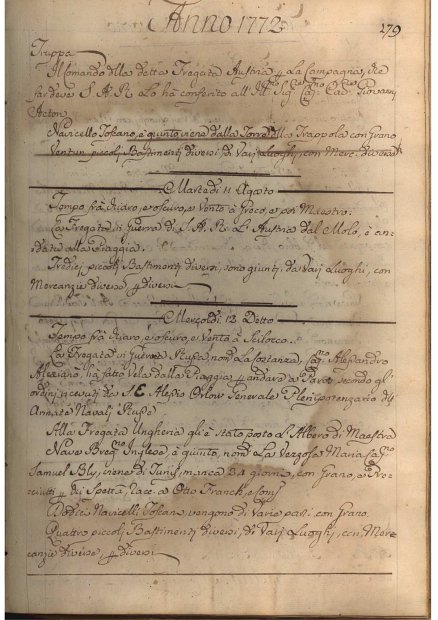 Anno 1772
279
Truppa
Il Comando della detta Fregata Austria la Compagnia, che
far deve S. A. R. Lo hà conferito all' Ill. Sig. Cav. Giovanni
Acton
Navicello Toscano, è giunto viene dalla Torre della Trappola con Grano
Ventun piccoli Bastimenti diversi di Varj Luoghi, con Merc. diverse
Martedì 11 Agosto
Tempo frà chiaro, e oscuro, e Vento à Greco, e poi Maestro.
La Fregata di Guerra di S. A. R. L'Austria dal Molo, è an-
data alla Spiaggia.
Tredici piccoli Bastimenti diversi, sono giunti da Varj Luoghi, con
Mercanzie diverse, diversi
Mercoldì 12 Detto
Tempo frà chiaro, e oscuro, e Vento à Scilocco.
La Fregata di Guerra Russa, nom. La Costanza, Alessandro
hà fatto Vela dalla Spiaggia andare à Paros secondo gl'
ordini ricevuti da S E Alessio Orlow Generale Plenipotenziario di
Armate Navali Russe
Alla Fregata Ungheria gl'è stato posto l'Albero di Maestra
Nave Inglese, è giunto, nom. La Vezzosa Maria
Samuel Bly, viene di Tunis, manca 34 giorni, con Grano, e
di Spetta, Race. a Otto Franck, e
Dodici Navicelli Toscani, vengono di Varie parti con Grano
Quattro piccoli Bastimenti diversi, di Varj Luoghi, con Mer-
canzie diverse, diversi